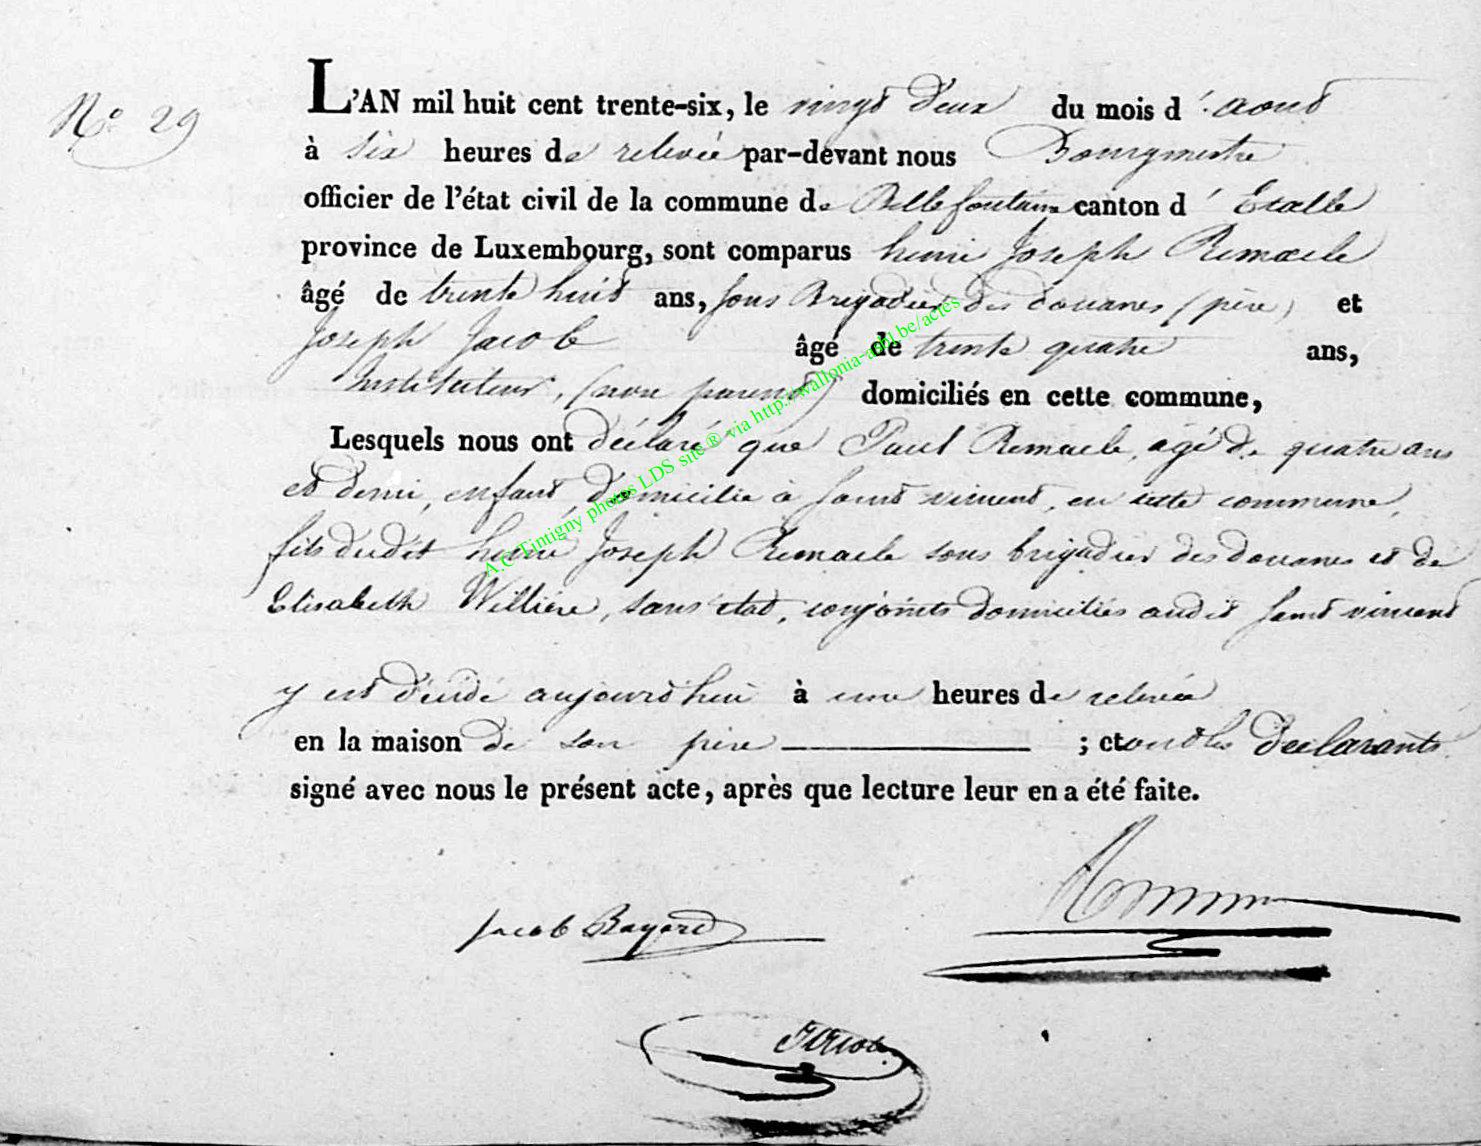 N° 29
L'AN mil huit cent trente-six, le vingt deux du mois d'aout
à six heures de relevée par-devant nous Bourgmestre
officier de l'état civil de la commune de Bellefontaine canton d'Etalle
province de Luxembourg, sont comparus henri Joseph Remacle
âgé de trente huit ans, sous Brigadier des douanes (père) et
Joseph Jacob âgé de trente quatre ans,
Instituteur, (non parent) domiciliés en cette commune,
Lesquels nous ont déclaré que Paul Remacle, agé de quatre ans
et demi, enfant, domicilié à saint vincent, en cette commune,
fils dudit henri Joseph Remacle sous brigadier des douanes et de
Elisabeth Willière, sans état, conjoints domiciliés audit saint vincent
y est décédé aujourd'hui à une heures de relevée
en la maison de son père ; et ont les déclarants
signé avec nous le présent acte, après que lecture leur en a été faite.
Jacob Bayard
A.C Tintigny photos LDS site® via http://wallonia-asbl.be/actes